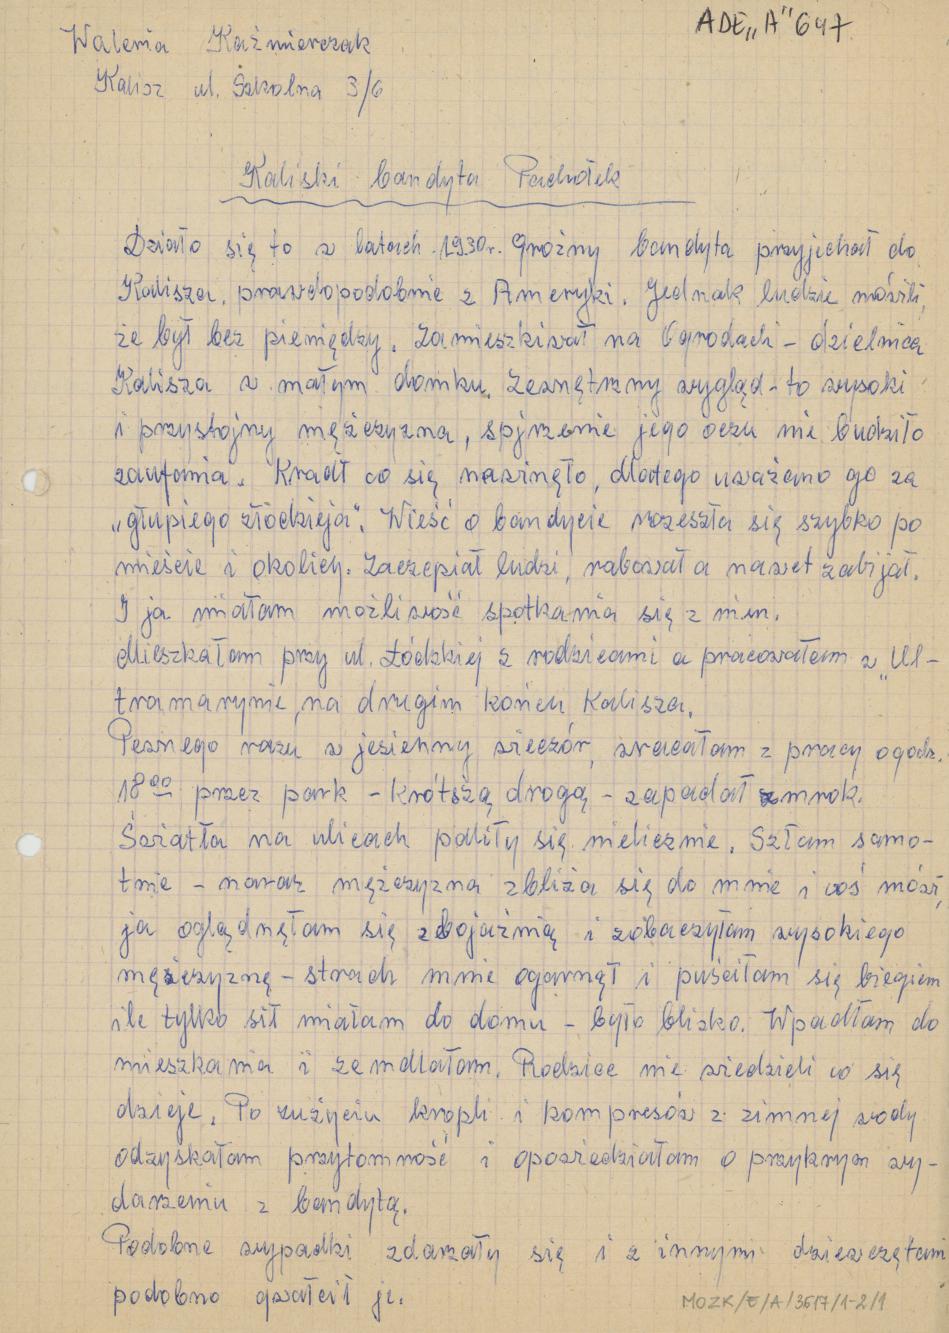 ADE „A" 647
Waleria Kaźmierczak
Kalisz ul. Szkolna 3/6
Kaliski bandyta Pachołek
Działo się to w latach 1930r. Groźny bandyta przyjechał do
Kalisza, prawdopodobnie z Ameryki. Jednak ludzie mówili,
że był bez pieniędzy. Zamieszkiwał na Ogrodach – dzielnica
Kalisza w małym domku. Zewnętrzny wygląd – to wysoki
i przystojny mężczyzna, spjrzenie jego oczu nie budziło
zaufania. Kradł co się nawinęło, dlatego uważano go za
„głupiego złodzieja". Wieść o bandycie rozeszła się szybko po
mieście i okolicy. Zaczepiał ludzi, rabował a nawet zabijał.
I ja miałam możliwość spotkania się z nim.
Mieszkałam przy ul. Łódzkiej z rodzicami a pracowałam w „Ul-
tramarynie, na drugim końcu Kalisza.
Pewnego razu w jesienny wieczór, wracałam z pracy o godz.
18⁰⁰ przez park – krótszą drogą – zapadał zmrok.
Światła na ulicach paliły się nielicznie. Szłam samo-
tnie – naraz mężczyzna zbliża się do mnie i coś mówi,
ja oglądnęłam się z bojaźnią i zobaczyłam wysokiego
mężczyznę – strach mnie ogarnął i puściłam się biegiem
ile tylko sił miałam do domu – było blisko. Wpadłam do
mieszkania i zemdlałam. Rodzice nie wiedzieli co się
dzieje. Po zużyciu kropli i kompresów z zimnej wody
odzyskałam przytomność i opowiedziałam o przykrym wy-
darzeniu z bandytą.
Podobne wypadki zdarzały się i z innymi dziewczętami
podobno gwałcił je.
MOZK/E/A/3617/1-2/1